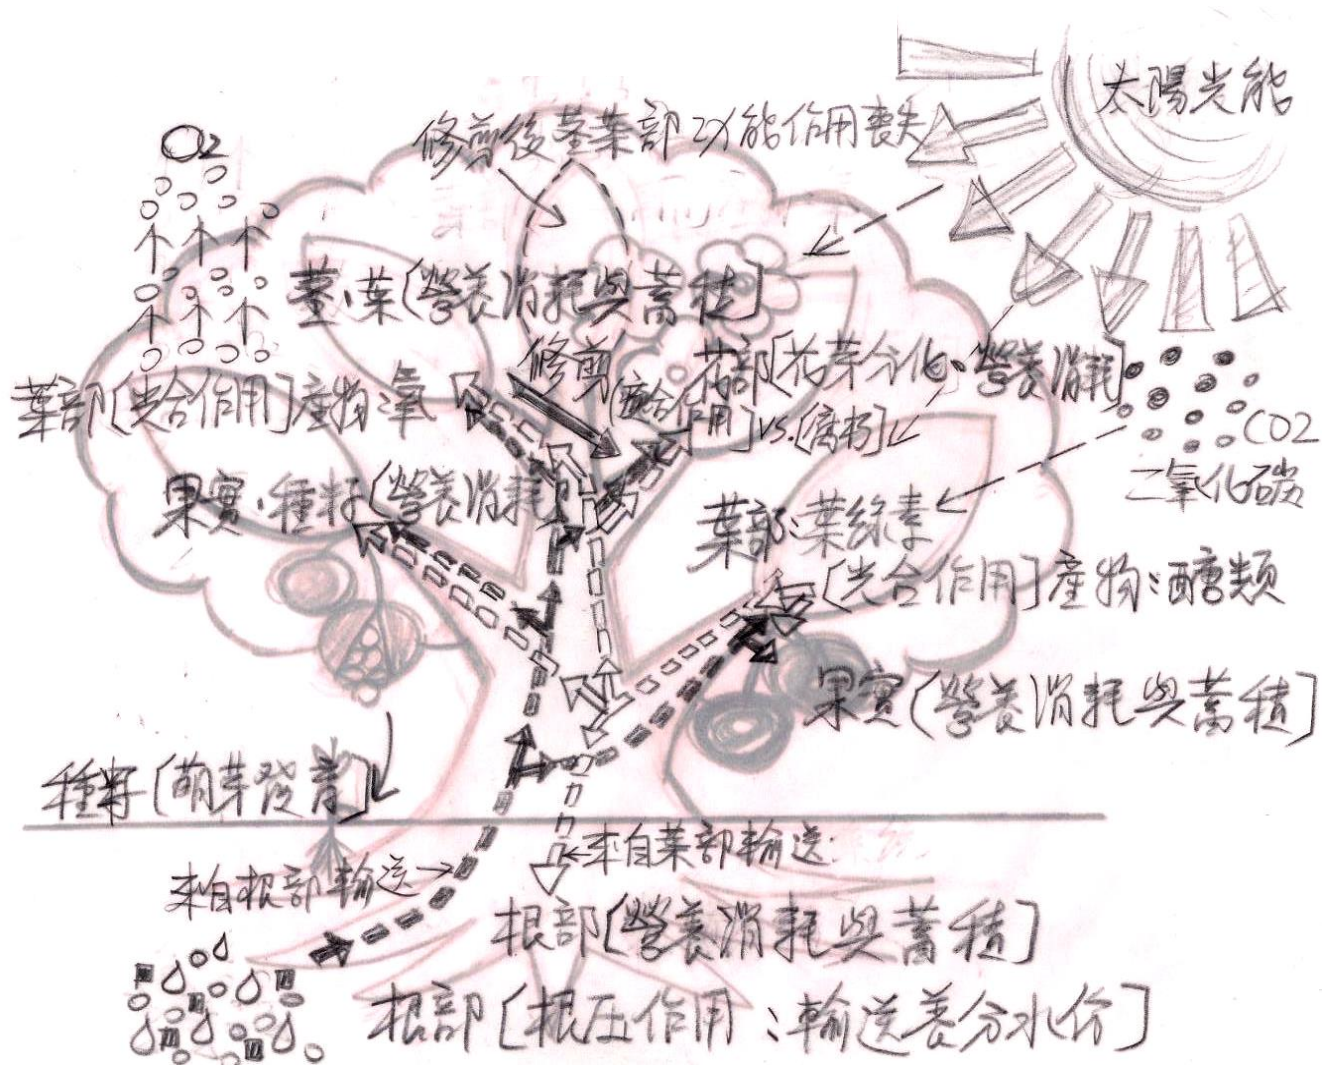 太陽光能
修剪後莖葉部功能作用喪失
O2
莖、葉(營養消耗與蓄積]
修剪
花部[花芽分化、營養消耗]
葉部[光合作用]產物:氧
[癒合作用]vs.[腐朽]
CO2
二氧化碳
果實、種籽(營養消耗]
葉部:葉綠素
[光合作用]產物:醣類
果實(營養消耗與蓄積]
種籽[萌芽發育]
來自葉部輸送
來自根部輸送
根部[營養消耗與蓄積]
根部[根压作用:輸送養分水份]